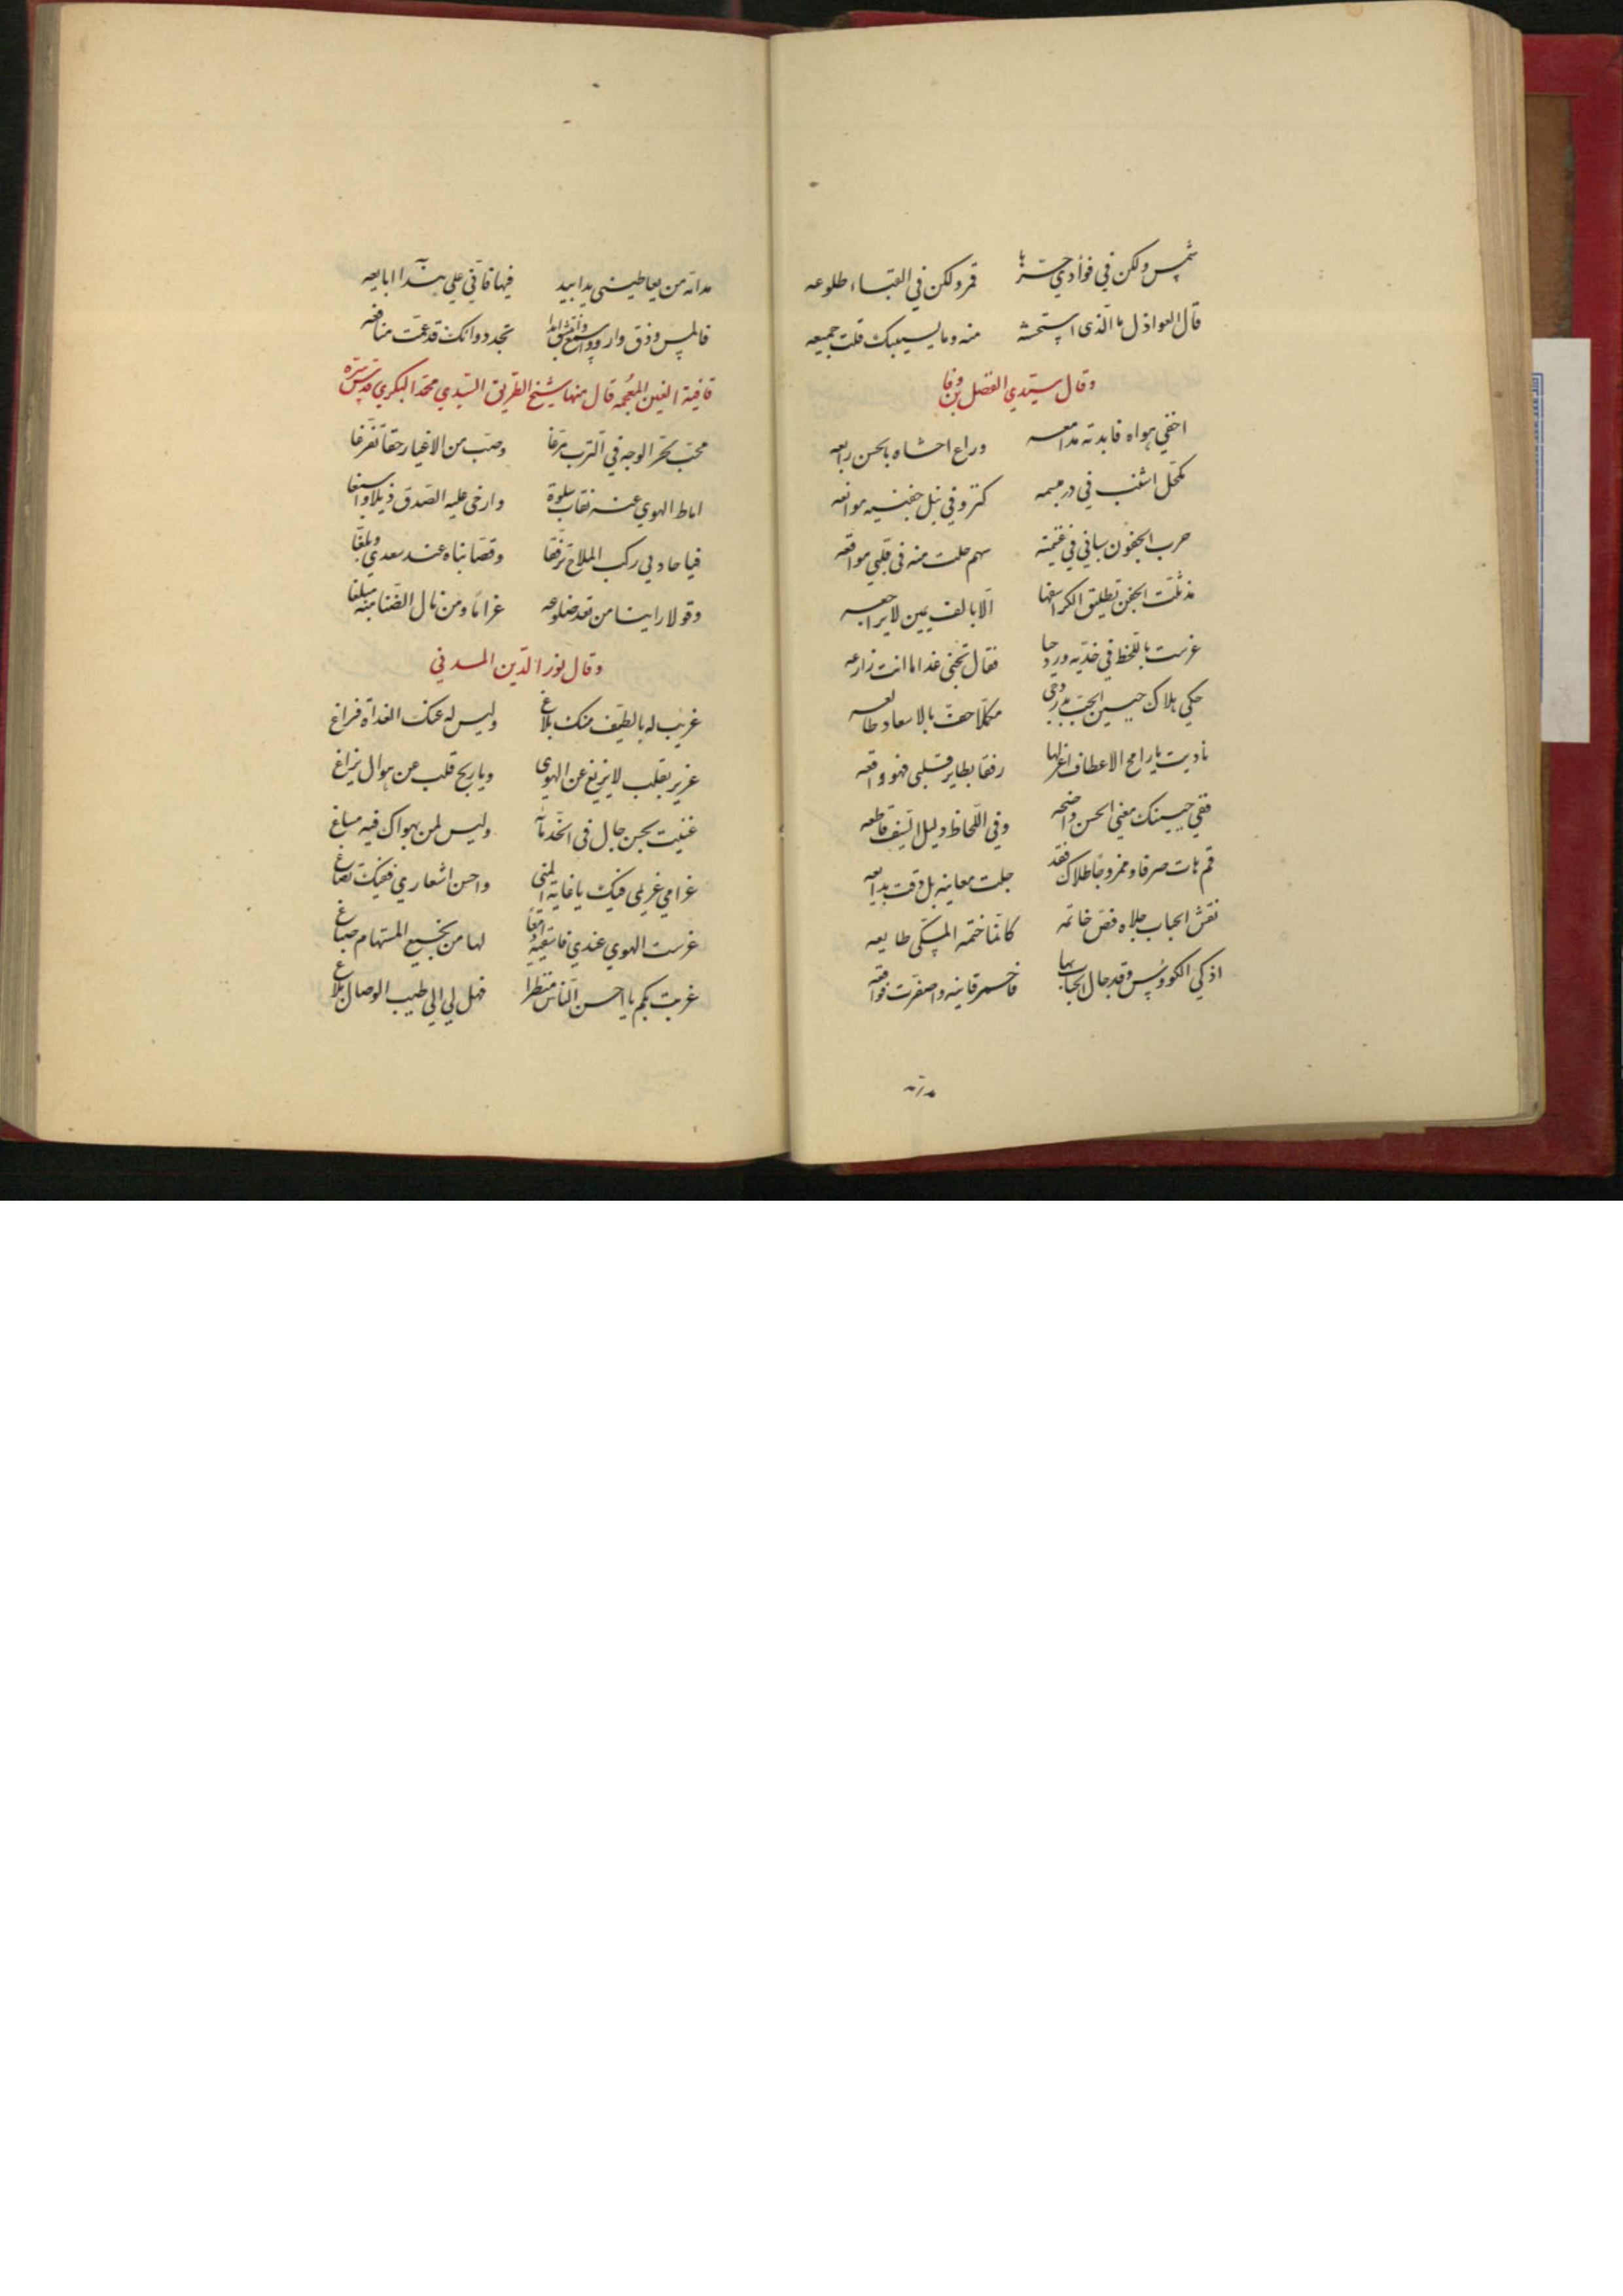 شمس ولكن في فؤادي حرها قمر ولكن في القباء طلوعه
قال العواذل ما الذي استحسنته منه وما يسبيك قلت جميعه
وقال سيدي الفضل بن وفا
اخفي هواه فابدته مدامعه وراع احشاه بالحسن رايعه
مكحل اشنب في در مبسمه كنز وفي نبل جفنيه موانعه
حرب الجفون سباني في غنيمته سهم حلت منه في قلبي مواقعه
مذ بلت الجفن تطليق الكرا سفها الا بالف يمين لا يراجعه
غرست باللحظ في خديه ورد حيا فقال تجني غدا ما انت زارعه
حكي هلاك جبين الحب بدر دجي مكملا حف بالاسعاد طالعه
ناديت يا رامح الاعطاف اغزلها رفقا بطاير قلبي فهو واقعه
ففي جبينك معني الحسن واضحه وفي اللحاظ دليل السيف قاطعه
قم هات صرفا وممزوجا طلاك فقد جلت معانيه بل دقت بدايعه
نقش الحباب جلاه فص خاتمه كانما ختمه المسكي طابعه
اذكي الكووس وقد جال الحباب بها فاحمر قانيه واصفرت فواقعه
مدامة
مدامة من يعاطيني يدا بيد فيها فاني علي هذا ابايعه
فالمس وذق وار واسمع وانتشق ابدا تجدد وانك قد عمت منافعه
قافية الغين المعجمه قال منها شيخ الطريق السيدي محمد البكري قدس سره
محب بحر الوجه في الترب مرغا وصب من الاغيار حقا تفرغا
اماط الهوي عنه نقاب سلوة وارخي عليه الصدق ذيلا واسبغا
فيا حاديي ركب الملاح ترفقا وقصا نباه عند سعدي وبلغا
وقولا راينا من تقد ضلوعه غراما ومن نال الضنا منه مبلغا
وقال نور الدين المدني
غريب له بالطيف منك بلاغ وليس له عنك الغداة فراغ
عزيز بقلب لا يزيغ عن الهوي ويا ربح قلب عن هواك يزاغ
غنيت بحسن جال في الخد ماه وليس لمن يهواك فيه مساغ
غرامي غريمي فيك يا غاية المني واحسن اشعاري ففيك تصاغ
غرست الهوي عندي فاسقيه دامعا لها من نجيع المستهام صباغ
غربت بكم يا احسن الناس منظرا فهل لي الي طيب الوصال بلاغ